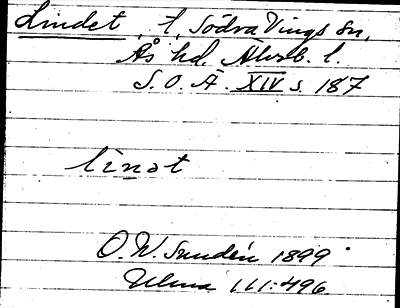 Lindet, t, Södra Vings sn,
Ås hd. Älvsb. l.
S. O. Ä. XIV s. 187
linət
O. W. Sundén 1899
111:496